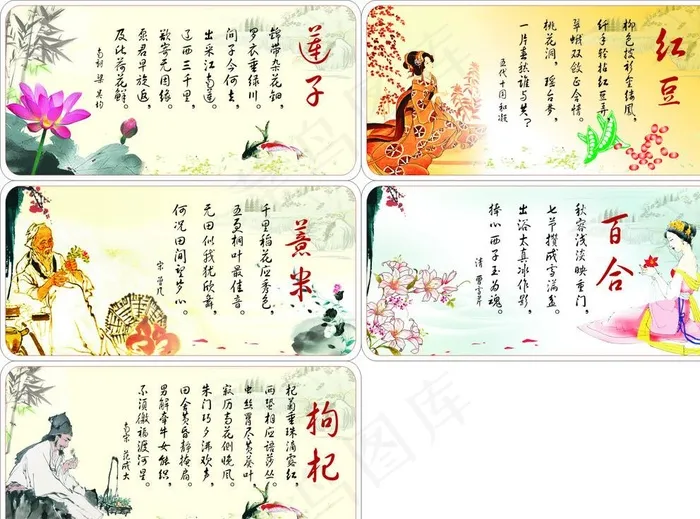 莲子
锦带杂花钿，
罗衣垂绿川。
问子今何去，
出采江南莲。
辽西三千里，
欲寄无因缘。
愿君早旋返，
及此荷花鲜。
南朝 梁 吴均
红豆
柳色披衫金缕凤，
纤手轻拈红豆弄，
翠蛾双敛正含情。
桃花洞，瑶台梦，
一片春愁谁与共？
五代十国 和凝
薏米
千里稻花应秀色，
五更桐叶最佳音。
无田似我犹欣舞，
何况田间望岁心。
宋 曾几
百合
秋容浅淡映重门，
七节攒成雪满盆。
出浴太真冰作影，
捧心西子玉为魂。
清 曹雪芹
枸杞
杞菊垂珠滴露红，
两蛩相应语莎丛。
虫丝罥尽黄葵叶，
寂历高花侧晚风。
朱门巧夕沸欢声，
田舍黄昏静掩扃。
男解牵牛女能织，
不须徼福渡河星。
南宋 范成大